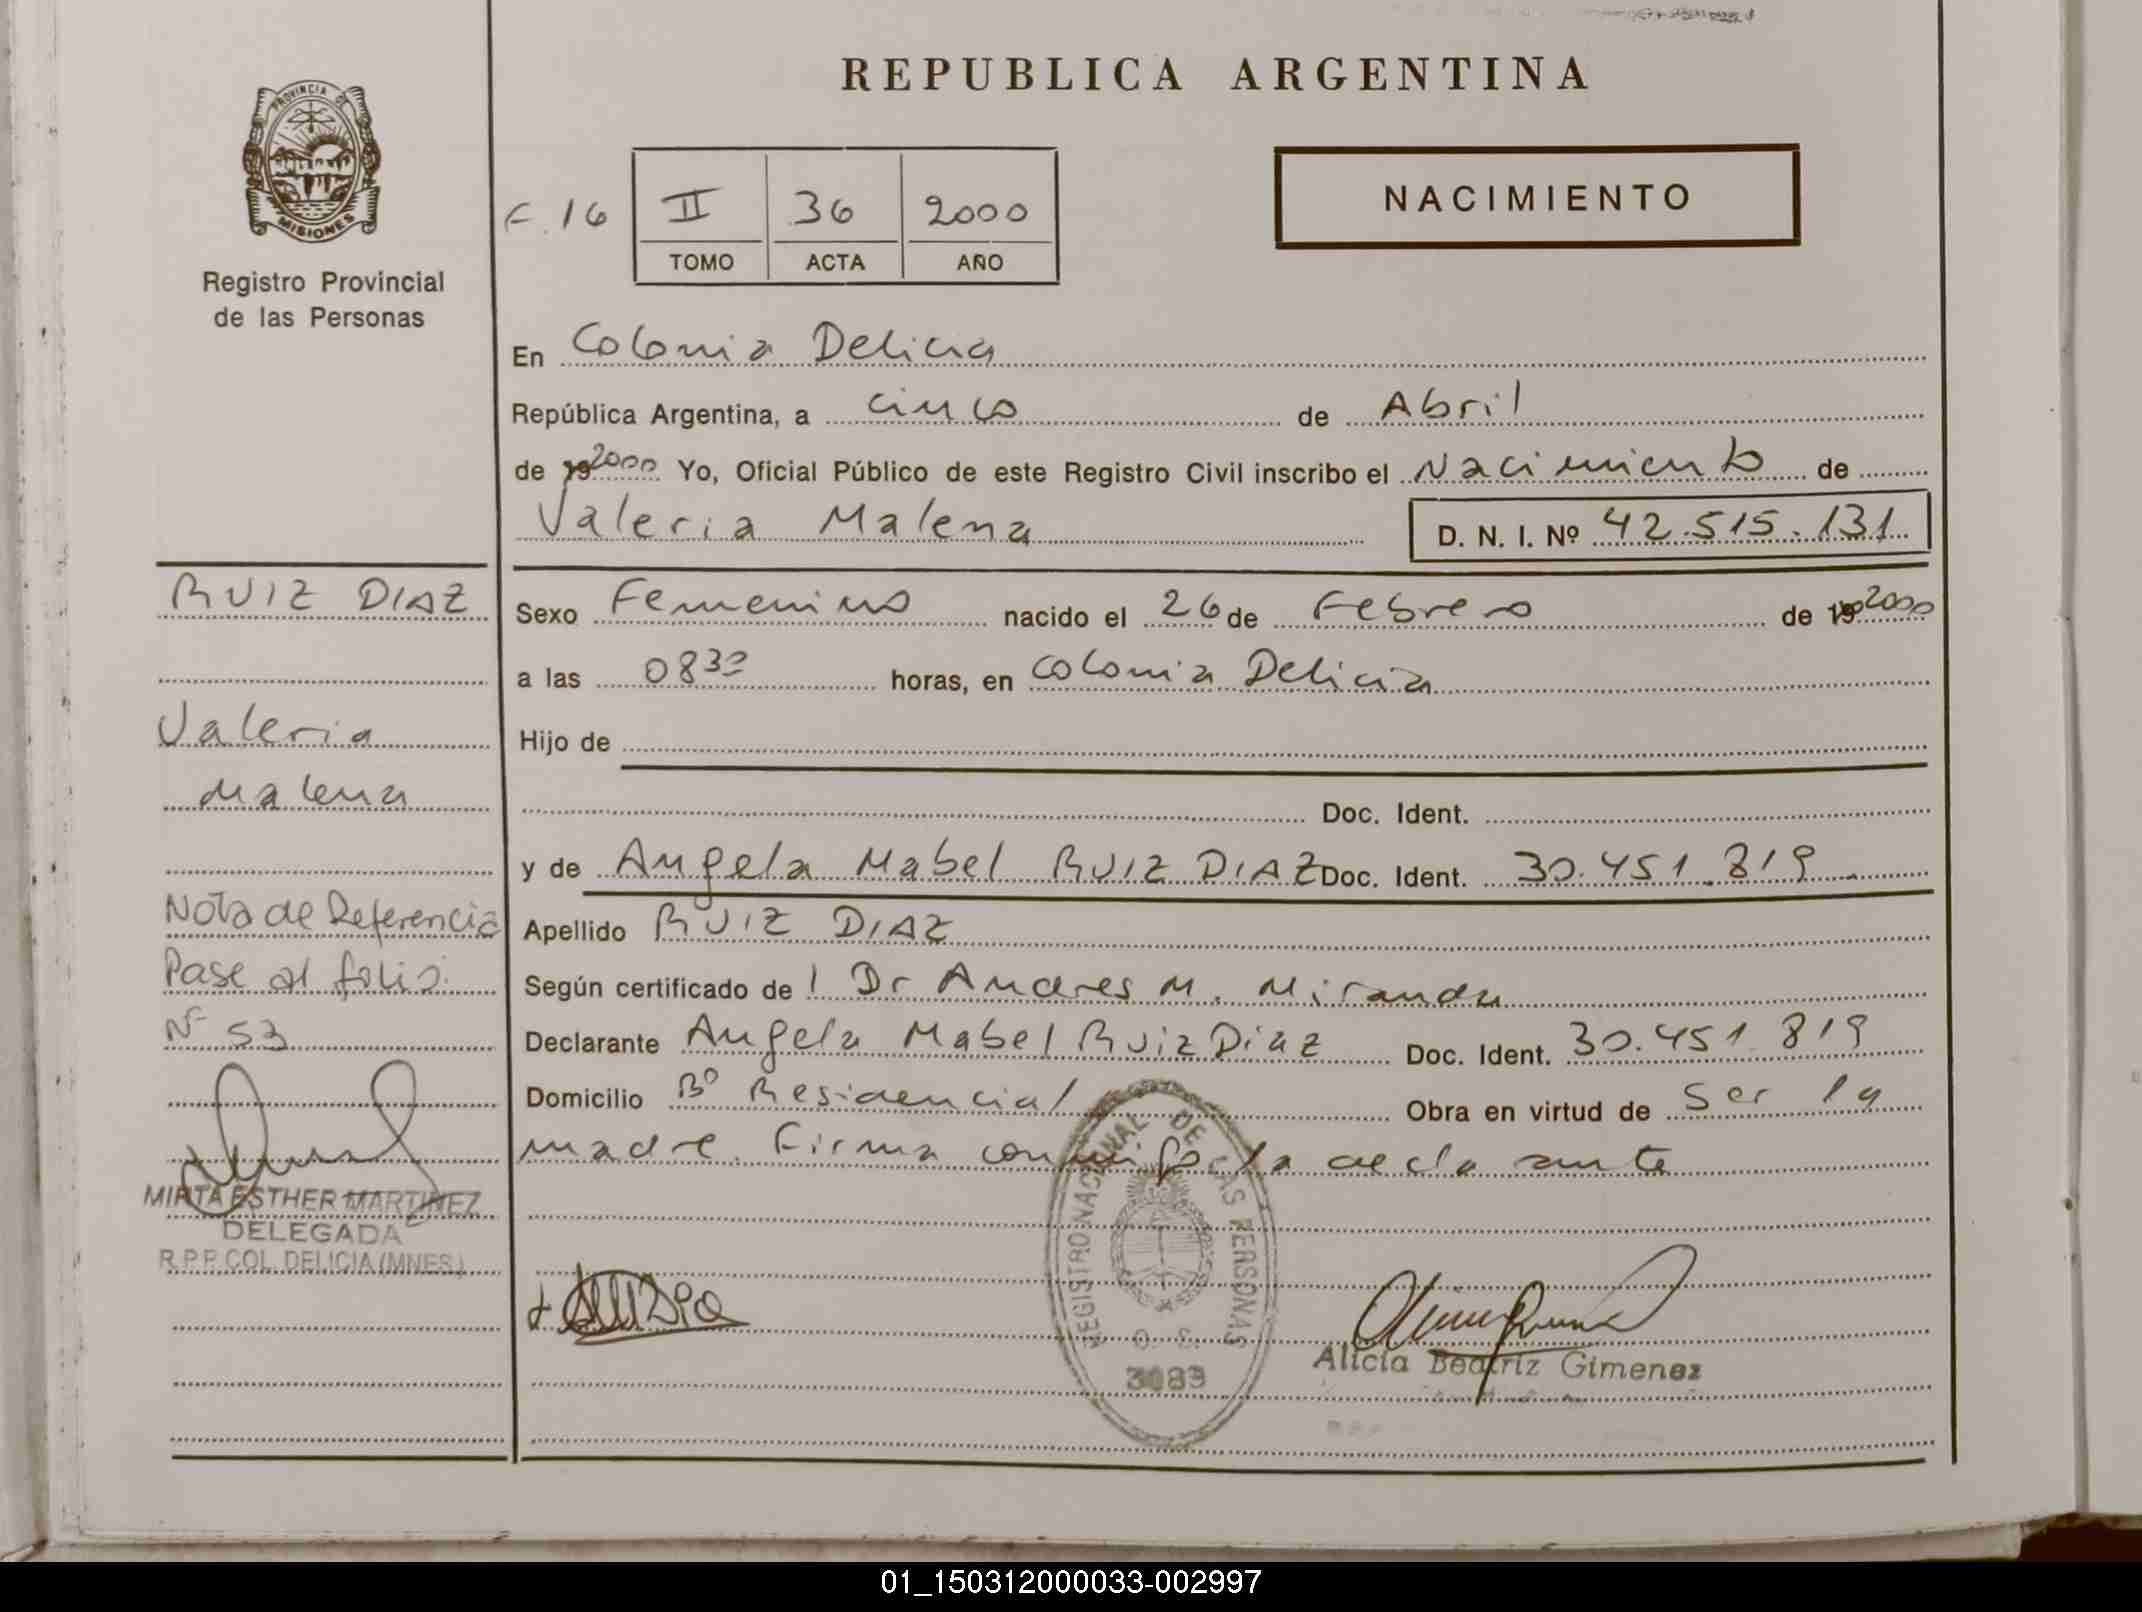 REPUBLICA ARGENTINA
PROVINCIA DE
MISIONES
Registro Provincial
de las Personas
F. 16
II 36 2000
TOMO ACTA AÑO
NACIMIENTO
En Colonia Delicia
República Argentina, a cinco de Abril
de 19 2000 Yo, Oficial Público de este Registro Civil inscribo el Nacimiento de
Valeria Malena D. N. I. Nº 42.515.131
Sexo Femenino nacido el 26 de Febrero de 19 2000
a las 08 30 horas, en Colonia Delicia
Hijo de
Doc. Ident.
y de Angela Mabel RUIZ DIAZ Doc. Ident. 30.451.819
Apellido RUIZ DIAZ
Según certificado de l Dr Andres M. Miranda
Declarante Angela Mabel Ruiz Diaz Doc. Ident. 30.451 819
Domicilio Bº Residencial Obra en virtud de Ser la
madre. Firma conmigo la declarante
RUIZ DIAZ
Valeria
Malena
Nota de Referencia
Pase al folio
Nº 53
MIRTA ESTHER MARTINEZ
DELEGADA
R.P.P. COL. DELICIA (MNES.)
REGISTRO NACIONAL DE LAS PERSONAS
O. S.
3083
Alicia Beatriz Gimenez
01_150312000033-002997